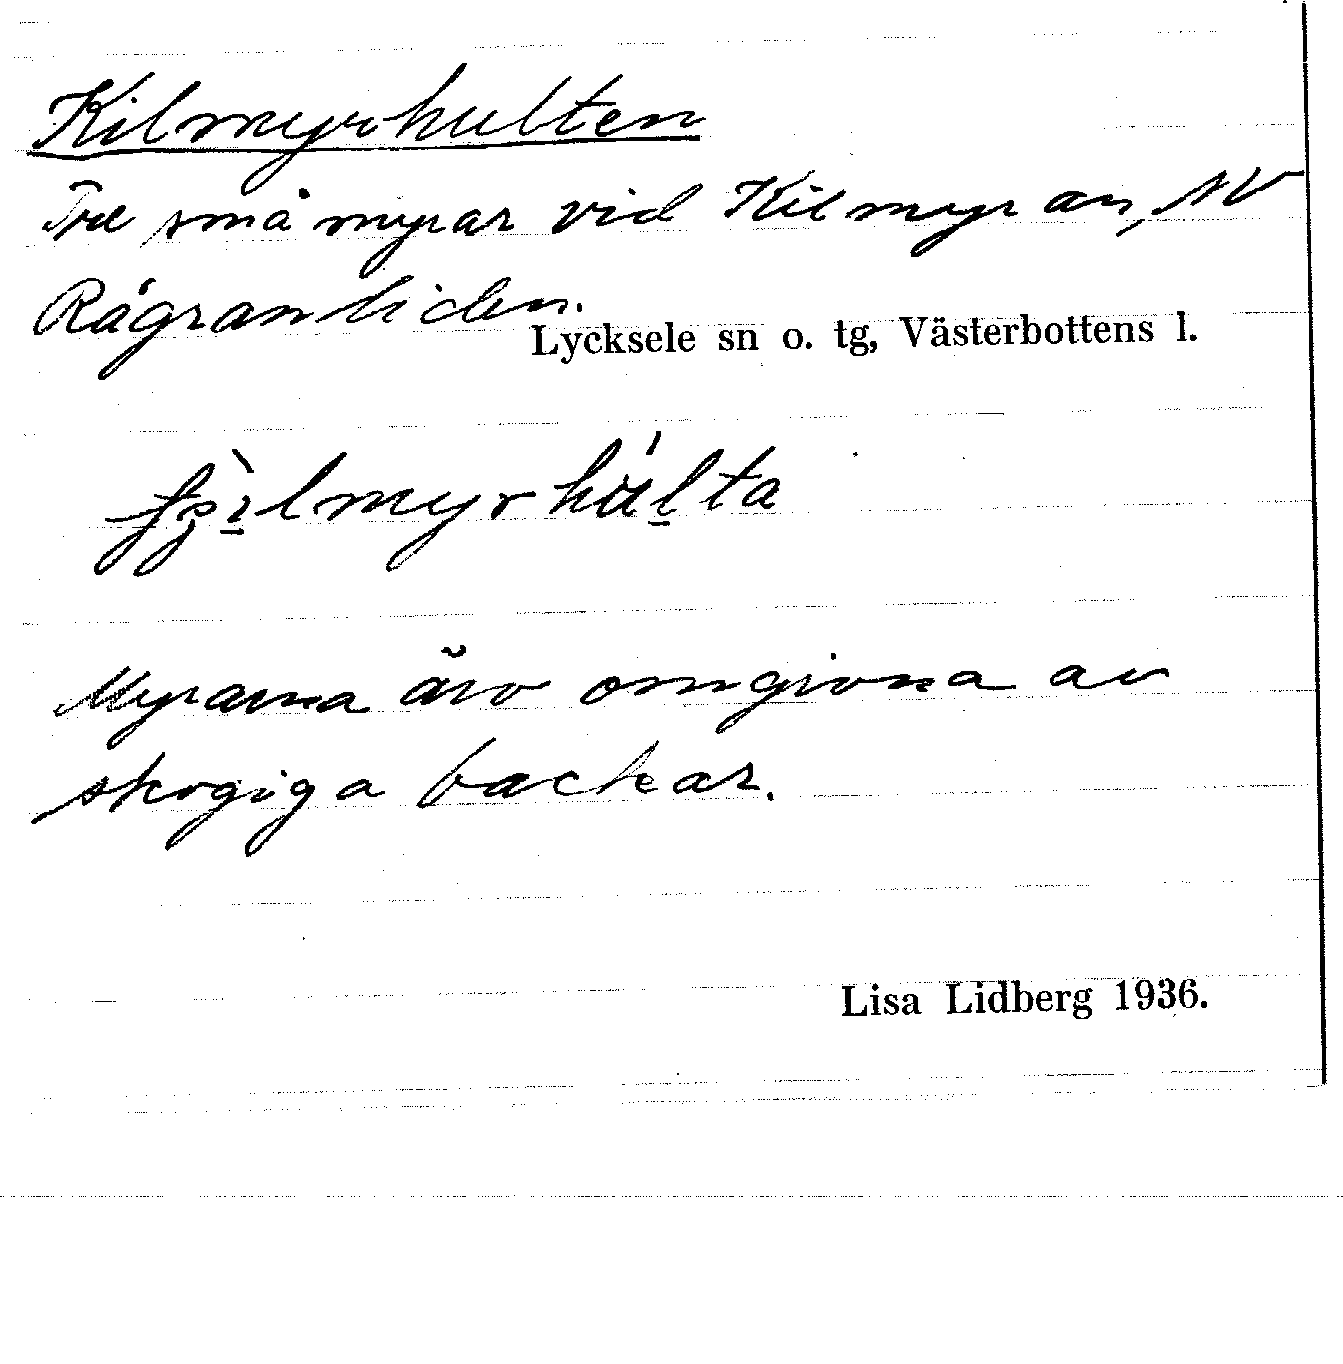 Kilmyrhulten
Tre små myrar vid Kilmyran, NV
Rågranliden.
Lycksele sn o. tg, Västerbottens l.
Myrarna äro omgivna av
skogiga backar.
Lisa Lidberg 1936.